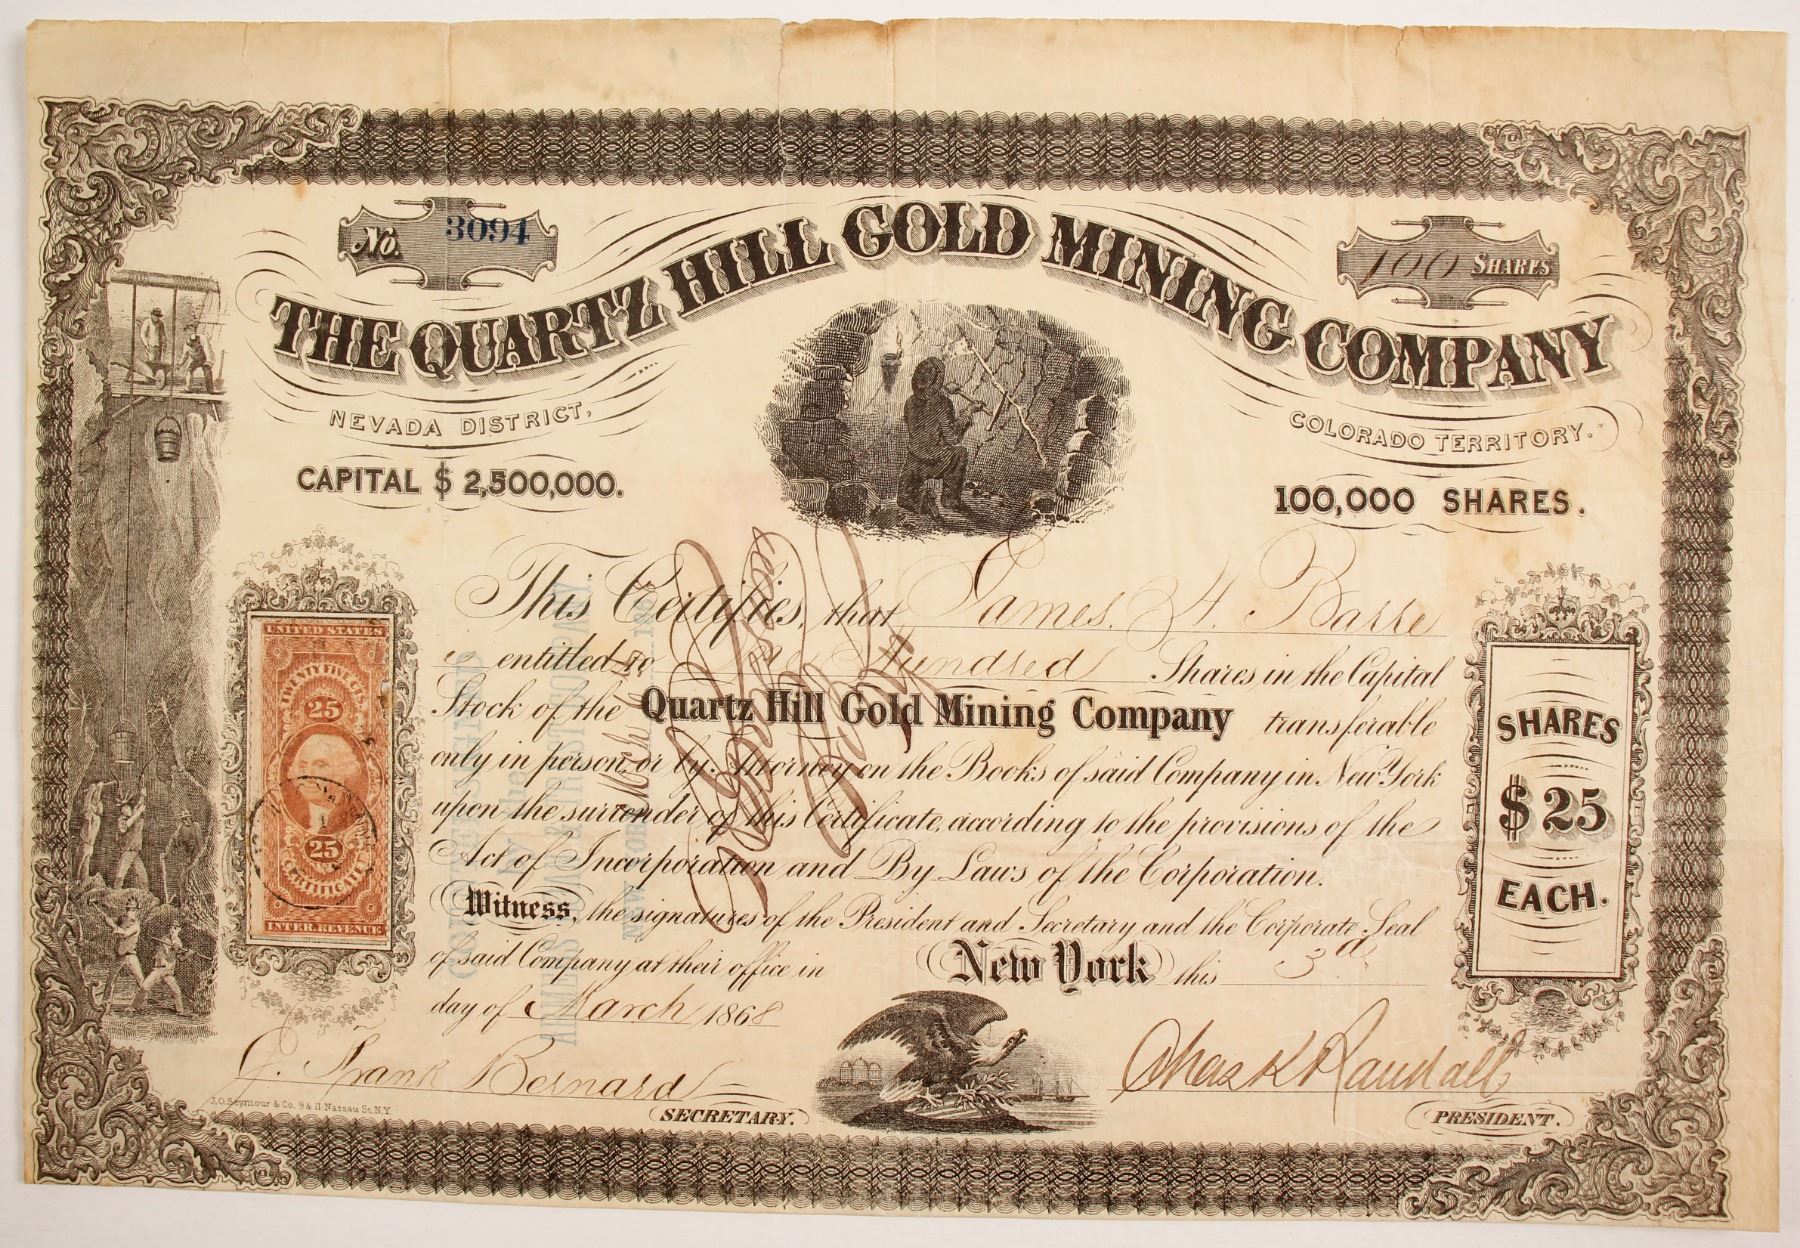 No. 3094
100 SHARES
THE QUARTZ HILL GOLD MINING COMPANY
NEVADA DISTRICT,
COLORADO TERRITORY.
CAPITAL $ 2,500,000.
100,000 SHARES.
This Certifies, that James. H. Barre
is entitled to One Hundred Shares in the Capital
Stock of the Quartz Hill Gold Mining Company transferable
only in person, or by Attorney on the Books of said Company in New York
upon the surrender of this Certificate, according to the provisions of the
Act of Incorporation and By Laws of the Corporation.
Witness, the signatures of the President and Secretary and the Corporate Seal
of said Company at their office in New York this 3d
day of March 1868
UNITED STATES
TWENTY FIVE CTS.
25
25
CERTIFICATE
INTER. REVENUE
SHARES
$ 25
EACH.
COUNTERSIGNED
by the
NEW YORK
March
J. Frank Bernard
SECRETARY.
Chas K Randall
PRESIDENT.
J.O. Seymour & Co. 9 & 11 Nassau St. N.Y